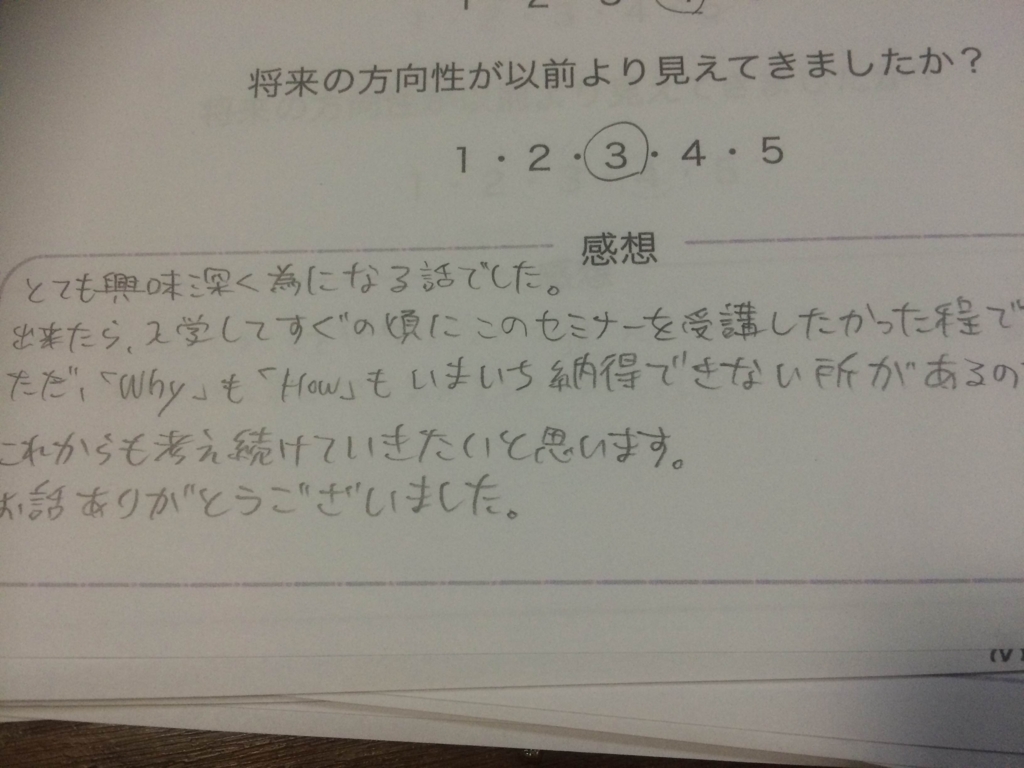 将来の方向性が以前より見えてきましたか？
1・2・3・4・5
感想
とても興味深く為になる話でした。
出来たら、入学してすぐの頃にこのセミナーを受講したかった程で
ただ、「Why」も「How」もいまいち納得できない所があるの
これからも考え続けていきたいと思います。
お話ありがとうございました。